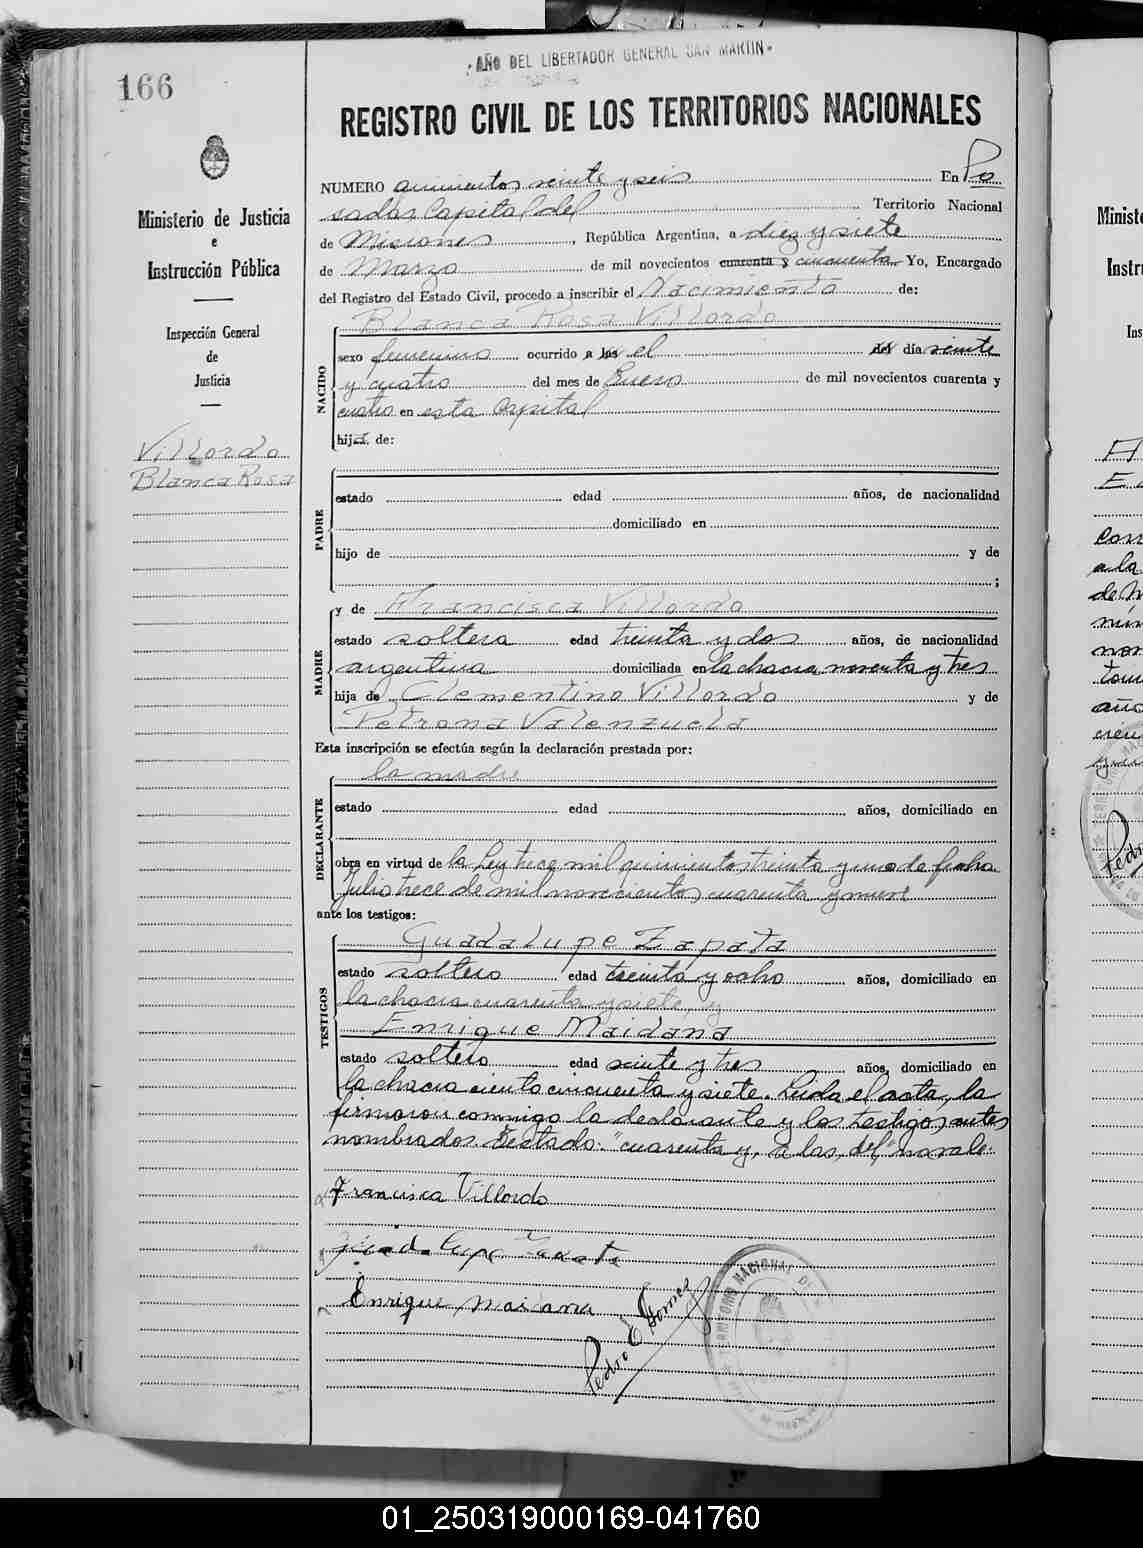 166
"AÑO DEL LIBERTADOR GENERAL SAN MARTIN"
REGISTRO CIVIL DE LOS TERRITORIOS NACIONALES
Ministerio de Justicia
e
Instrucción Pública
Inspección General
de
Justicia
Villordo
Blanca Rosa
NUMERO quinientos veinte y seis En Po
sadas, Capital del Territorio Nacional
de Misiones, República Argentina, a diez y siete
de Marzo de mil novecientos cuarenta y cincuenta Yo, Encargado
del Registro del Estado Civil, procedo a inscribir el Nacimiento de:
Blanca Rosa Villordo
NACIDO
sexo femenino ocurrido a las el del día veinte
y cuatro del mes de Enero de mil novecientos cuarenta y
cuatro en esta Capital
hija de:
PADRE
estado edad años, de nacionalidad
domiciliado en
hijo de y de
;
MADRE
y de Francisca Villordo
estado soltera edad treinta y dos años, de nacionalidad
argentina domiciliada en la chacra noventa y tres
hija de Clementino Villordo y de
Petrona Valenzuela
Esta inscripción se efectúa según la declaración prestada por:
DECLARANTE
la madre
estado edad años, domiciliado en
obra en virtud de la Ley trece mil quinientos treinta y uno de fecha
Julio trece de mil novecientos cuarenta y nueve
ante los testigos:
TESTIGOS
Guadalupe Zapata
estado soltero edad treinta y ocho años, domiciliado en
la chacra cuarenta y siete, y
Enrique Maidana
estado soltero edad veinte y tres años, domiciliado en
la chacra ciento cincuenta y siete. Leida el acta, la
firmaron conmigo la declarante y los testigos antes
nombrados. Testado: "cuarenta y, a las, del," no vale.
Francisca Villordo
Guadalupe Zapata
Enrique Maidana
Pedro E Gomez
Ministe
Instr
Ins
01_250319000169-041760